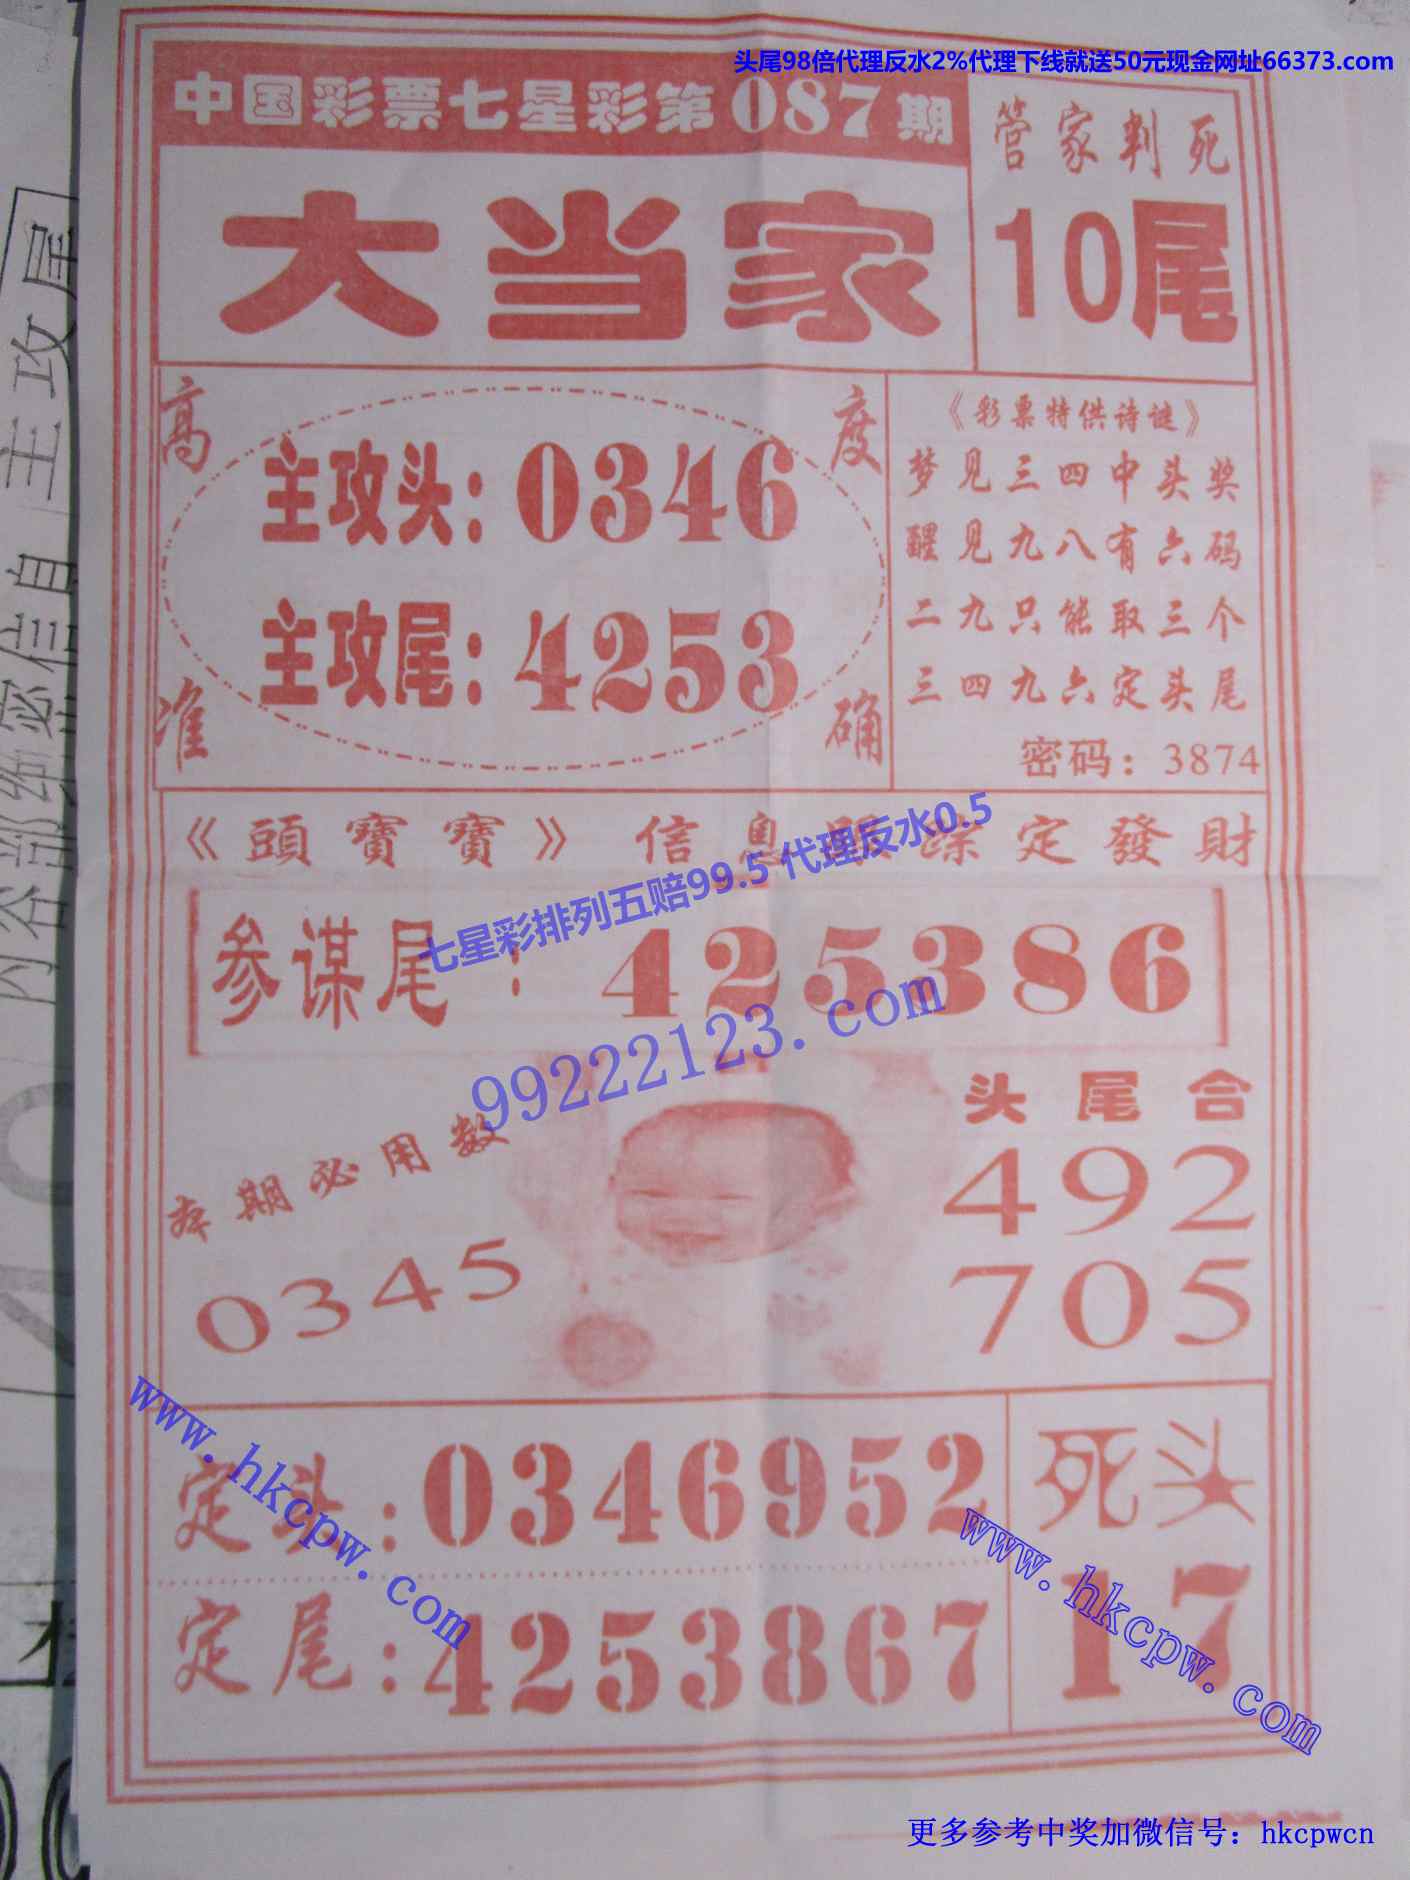 头尾98倍代理反水2%代理下线就送50元现金网址66373.com
中国彩票七星彩第087期
管家判死
大当家
10尾
高度准确
主攻头:0346
主攻尾:4253
《彩票特供诗谜》
梦见三四中头奖
醒见九八有六码
二九只能取三个
三四九六定头尾
密码:3874
《頭寶寶》信息 定發財
七星彩排列五赔99.5 代理反水0.5
参谋尾:425386
99222123.com
本期必用数
0345
头尾合
492
705
www.hkcpw.com
定头:0346952
死头
17
www.hkcpw.com
定尾:4253867
更多参考中奖加微信号:hkcpwcn
主攻尾